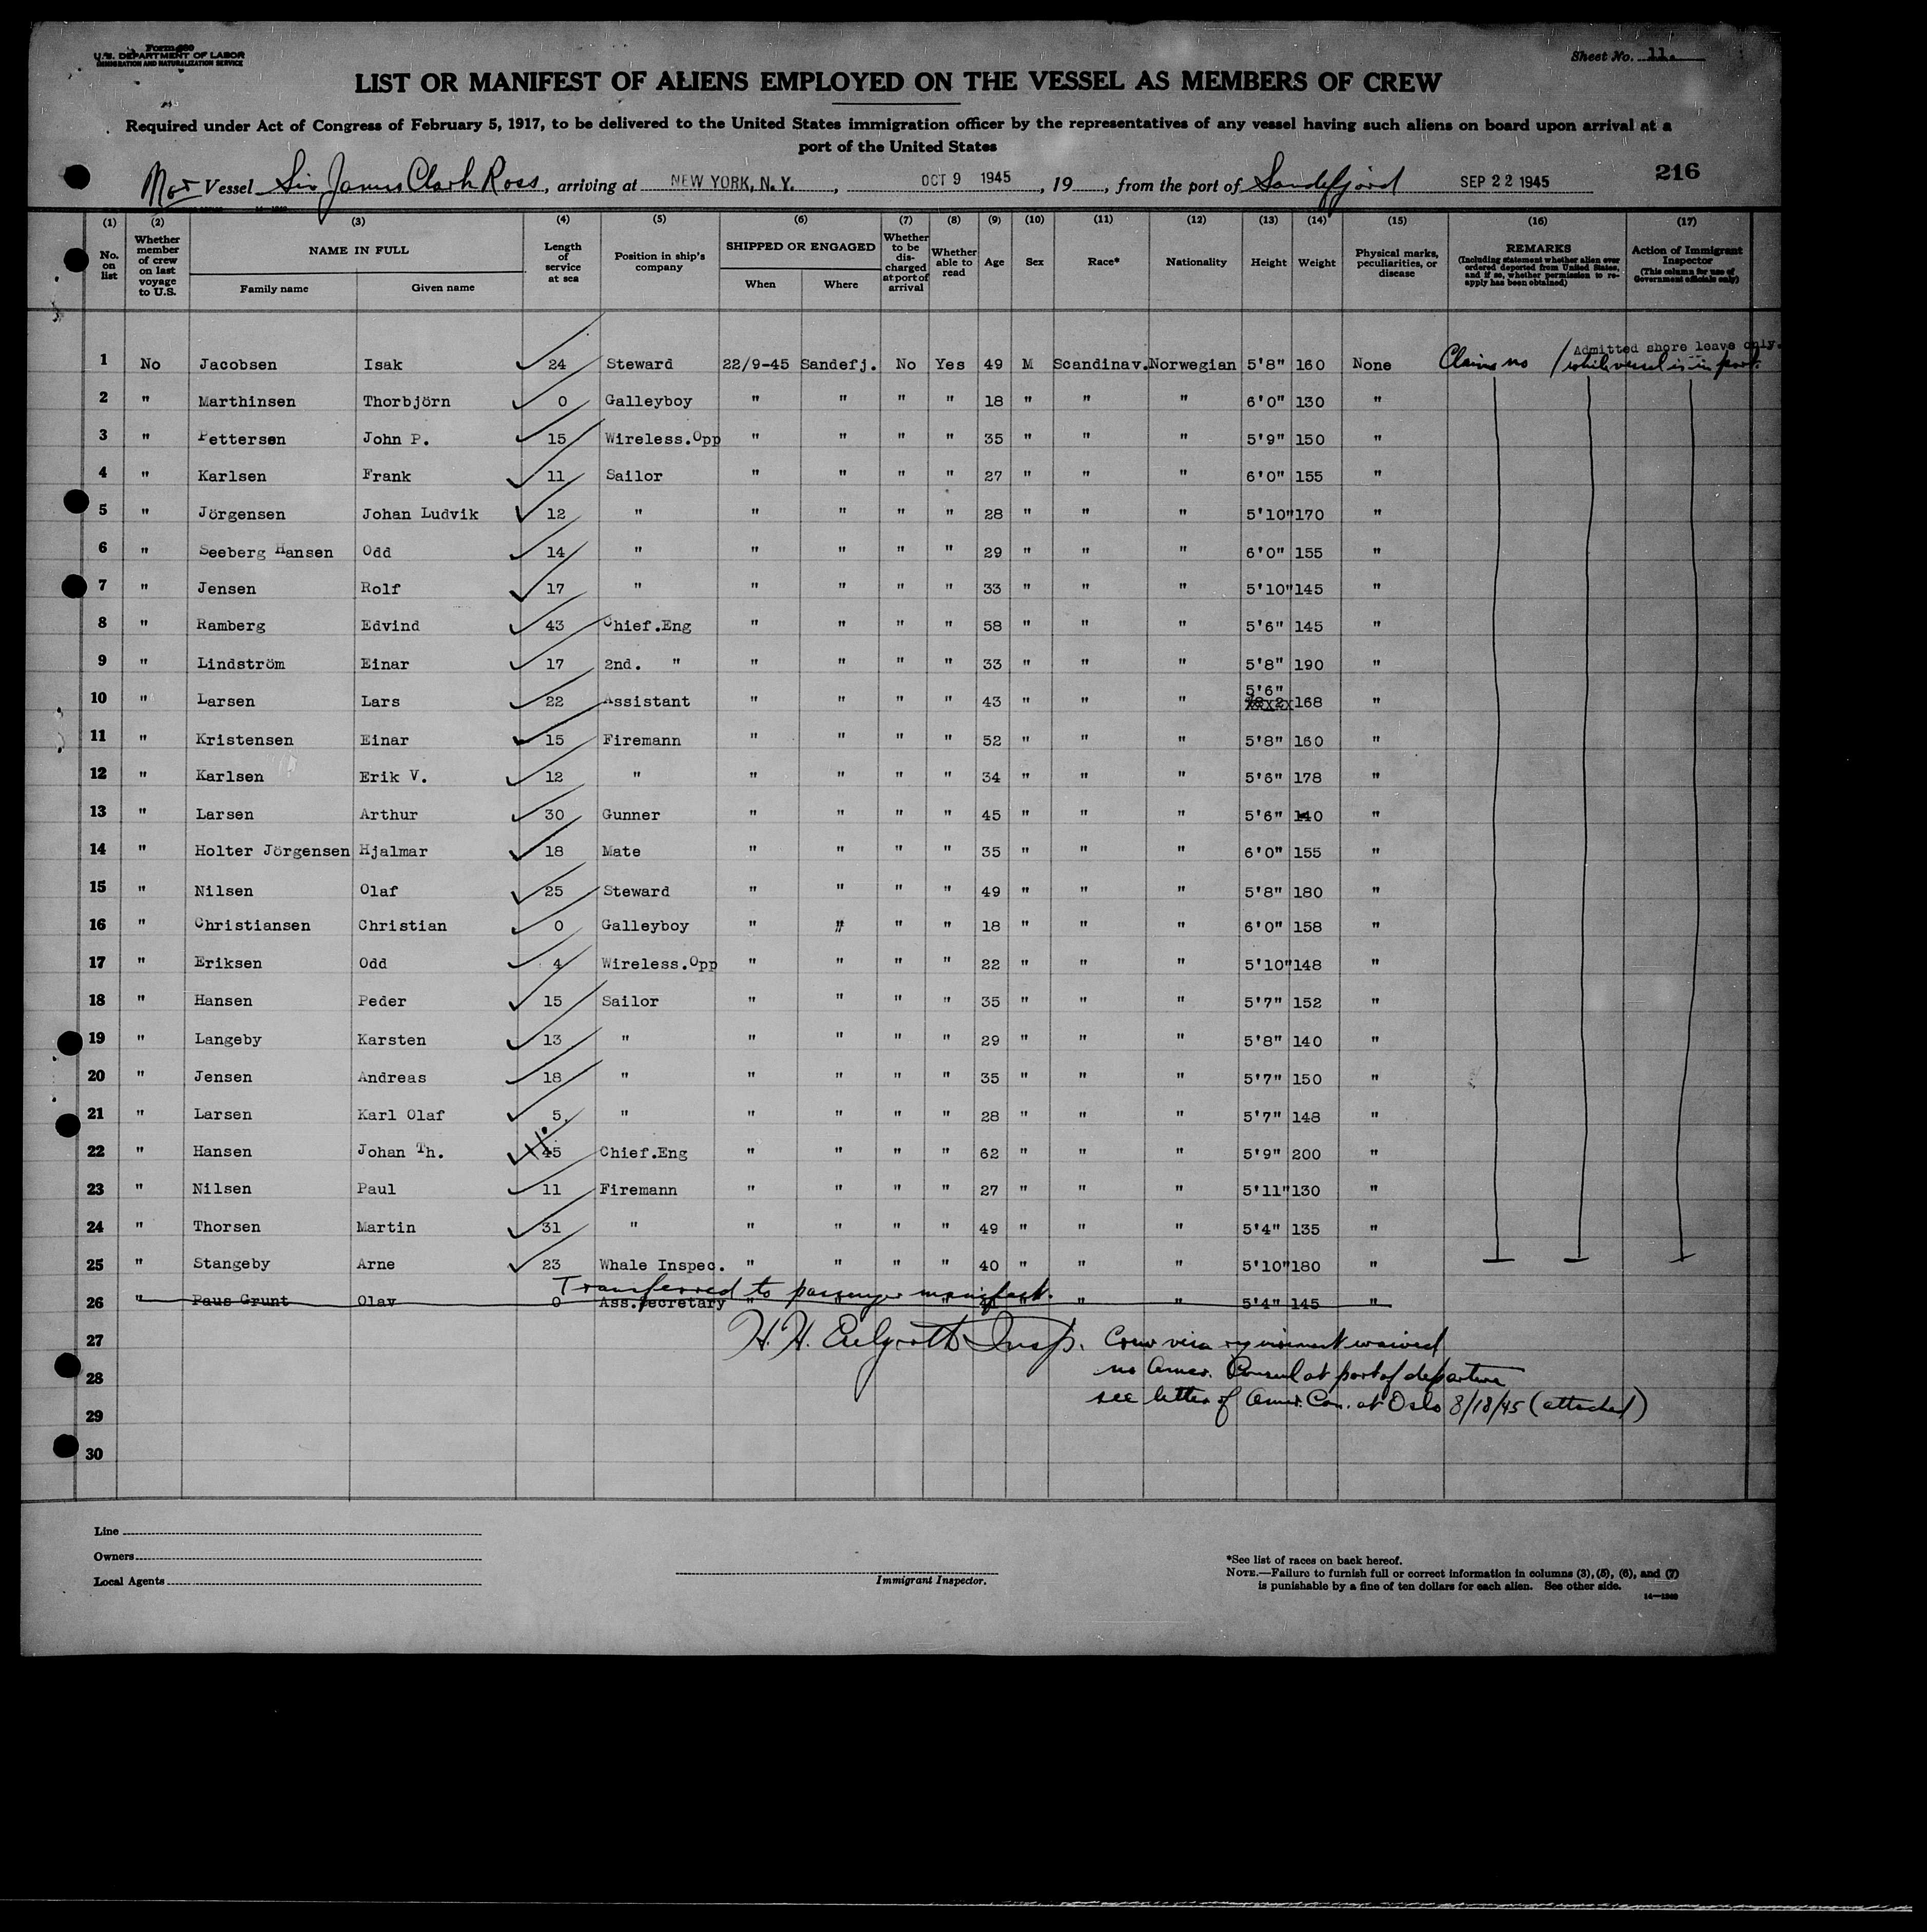 Form 680
U.S. DEPARTMENT OF LABOR
IMMIGRATION AND NATURALIZATION SERVICE
Sheet No. 11.
LIST OR MANIFEST OF ALIENS EMPLOYED ON THE VESSEL AS MEMBERS OF CREW
Required under Act of Congress of February 5, 1917, to be delivered to the United States immigration officer by the representatives of any vessel having such aliens on board upon arrival at a
port of the United States
216
Mot Vessel Sir James Clark Ross, arriving at NEW YORK, N. Y., OCT 9 1945, 19, from the port of Sandefjord SEP 22 1945
(1) (2) (3) (4) (5) (6) (7) (8) (9) (10) (11) (12) (13) (14) (15) (16) (17)
No. on list Whether member of crew on last voyage to U.S. NAME IN FULL Family name Given name Length of service at sea Position in ship's company SHIPPED OR ENGAGED When Where Whether to be discharged at port of arrival Whether able to read Age Sex Race* Nationality Height Weight Physical marks, peculiarities, or disease REMARKS (Including statement whether alien ever ordered deported from United States, and if so, whether permission to re-apply has been obtained) Action of Immigrant Inspector (This column for use of Government officials only)
Admitted shore leave only.
1 No Jacobsen Isak 24 Steward 22/9-45 Sandefj. No Yes 49 M Scandinav. Norwegian 5'8" 160 None Claims no / while vessel is in port.
2 " Marthinsen Thorbjörn 0 Galleyboy " " " " 18 " " " 6'0" 130 "
3 " Pettersen John P. 15 Wireless.Opp " " " " 35 " " " 5'9" 150 "
4 " Karlsen Frank 11 Sailor " " " " 27 " " " 6'0" 155 "
5 " Jörgensen Johan Ludvik 12 " " " " " 28 " " " 5'10" 170 "
6 " Seeberg Hansen Odd 14 " " " " " 29 " " " 6'0" 155 "
7 " Jensen Rolf 17 " " " " " 33 " " " 5'10" 145 "
8 " Ramberg Edvind 43 Chief.Eng " " " " 58 " " " 5'6" 145 "
9 " Lindström Einar 17 2nd. " " " " " 33 " " " 5'8" 190 "
10 " Larsen Lars 22 Assistant " " " " 43 " " " 5'6" 168 "
11 " Kristensen Einar 15 Firemann " " " " 52 " " " 5'8" 160 "
12 " Karlsen Erik V. 12 " " " " " 34 " " " 5'6" 178 "
13 " Larsen Arthur 30 Gunner " " " " 45 " " " 5'6" 140 "
14 " Holter Jörgensen Hjalmar 18 Mate " " " " 35 " " " 6'0" 155 "
15 " Nilsen Olaf 25 Steward " " " " 49 " " " 5'8" 180 "
16 " Christiansen Christian 0 Galleyboy " " " " 18 " " " 6'0" 158 "
17 " Eriksen Odd 4 Wireless.Opp " " " " 22 " " " 5'10" 148 "
18 " Hansen Peder 15 Sailor " " " " 35 " " " 5'7" 152 "
19 " Langeby Karsten 13 " " " " " 29 " " " 5'8" 140 "
20 " Jensen Andreas 18 " " " " " 35 " " " 5'7" 150 "
21 " Larsen Karl Olaf 5. " " " " " 28 " " " 5'7" 148 "
22 " Hansen Johan Th. 45 Chief.Eng " " " " 62 " " " 5'9" 200 "
23 " Nilsen Paul 11 Firemann " " " " 27 " " " 5'11" 130 "
24 " Thorsen Martin 31 " " " " " 49 " " " 5'4" 135 "
25 " Stangeby Arne 23 Whale Inspec. " " " " 40 " " " 5'10" 180 "
Transferred to passenger manifest.
26 " Paus Grunt Olav 0 Ass.secretary " " " " " " " 5'4" 145 "
27 H. H. Insp. Crew visa requirement waived
28 no Amer. Consul at port of departure
29 see letter of Amer. Con. at Oslo 8/18/45 (attached)
30
Line
Owners
Local Agents
Immigrant Inspector.
*See list of races on back hereof.
NOTE.—Failure to furnish full or correct information in columns (3), (5), (6), and (7)
is punishable by a fine of ten dollars for each alien. See other side.
14—1240